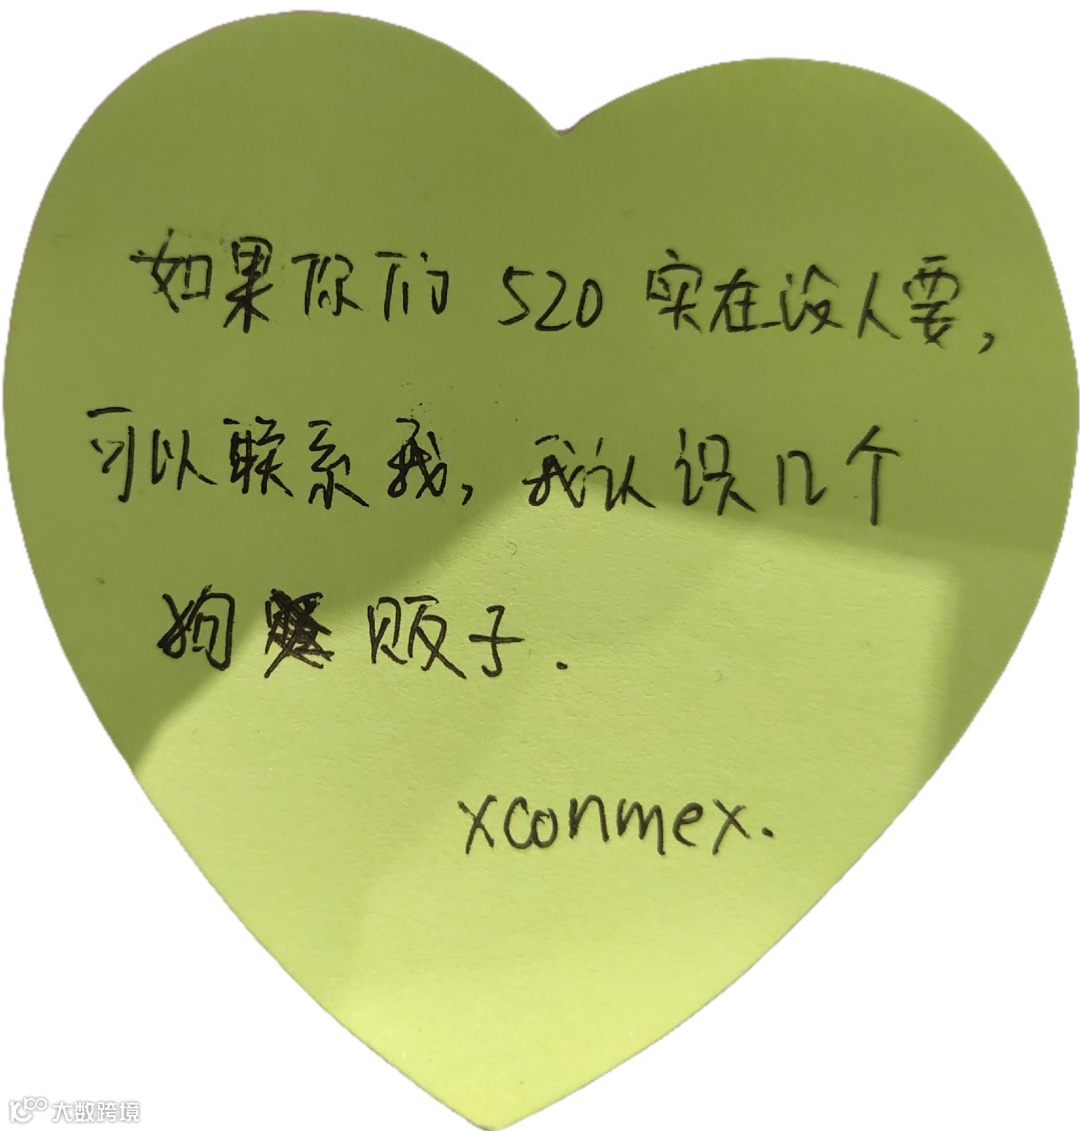 如果你们 520 实在没人要,
可以联系我, 我认识几个
狗贩子.
xconmex.
大数跨境